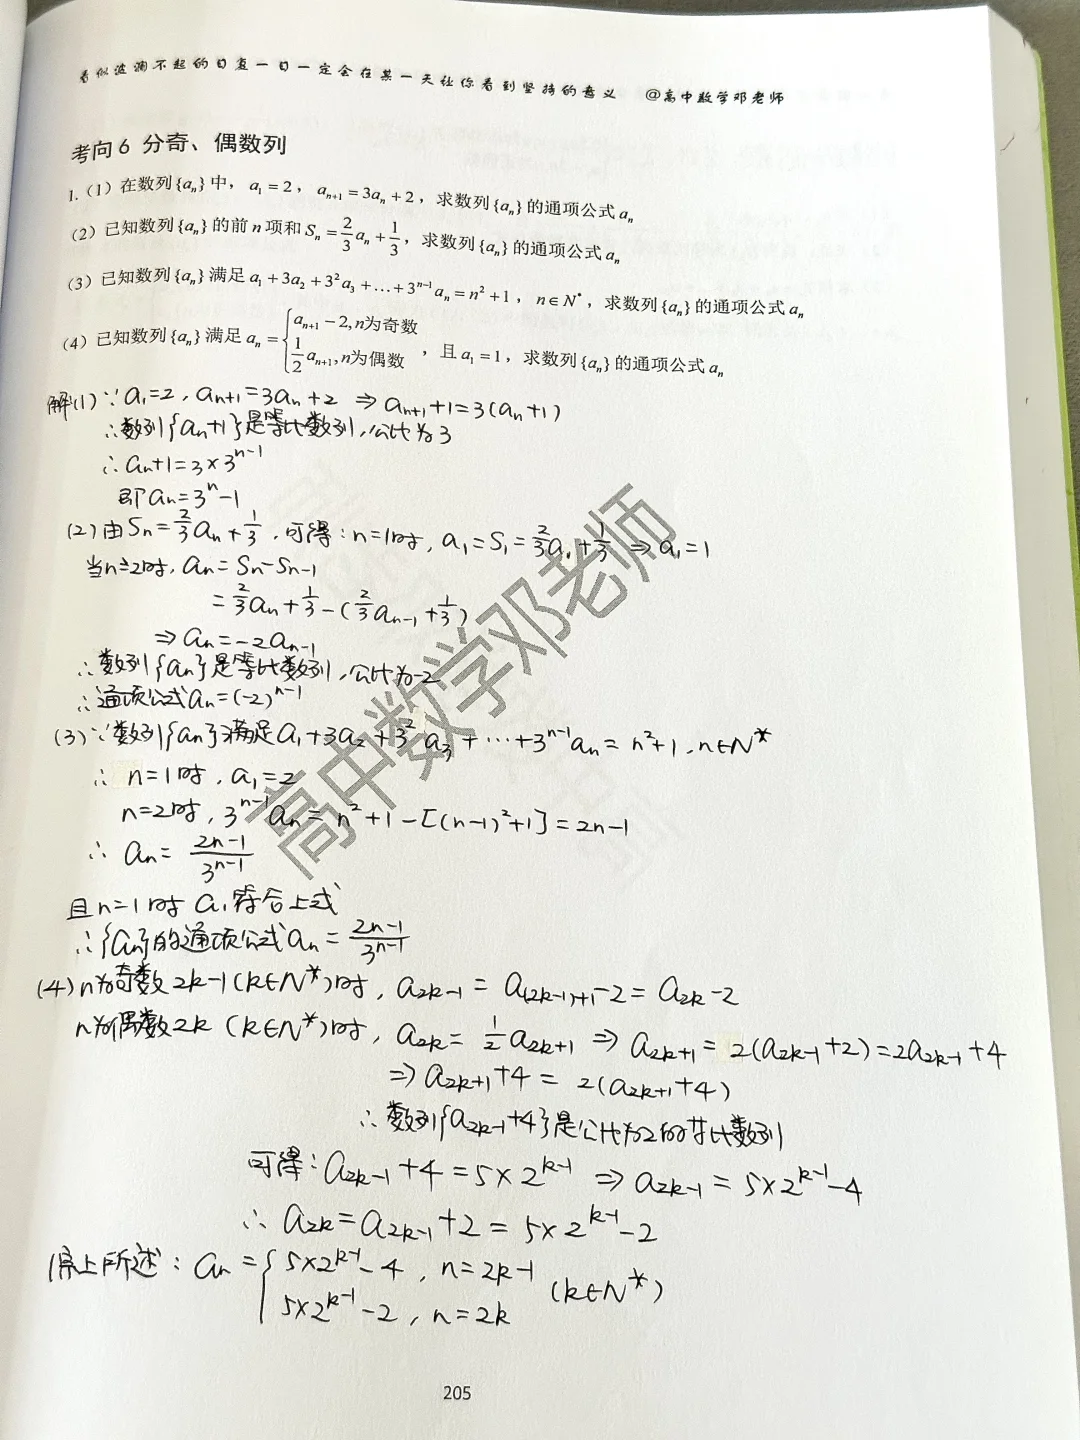 看似波澜不起的日复一日一定会在某一天让你看到坚持的意义 @高中数学邓老师
考向6 分奇、偶数列
1.（1）在数列{aₙ}中，a₁=2，aₙ₊₁=3aₙ+2，求数列{aₙ}的通项公式aₙ
（2）已知数列{aₙ}的前n项和Sₙ=2/3aₙ+1/3，求数列{aₙ}的通项公式aₙ
（3）已知数列{aₙ}满足a₁+3a₂+3²a₃+…+3ⁿ⁻¹aₙ=n²+1，n∈N*，求数列{aₙ}的通项公式aₙ
（4）已知数列{aₙ}满足aₙ={aₙ₊₁-2,n为奇数 1/2aₙ₊₁,n为偶数，且a₁=1，求数列{aₙ}的通项公式aₙ
解(1)∵a₁=2, aₙ₊₁=3aₙ+2 ⇒ aₙ₊₁+1=3(aₙ+1)
∴数列{aₙ+1}是等比数列,公比为3
∴aₙ+1=3×3ⁿ⁻¹
即aₙ=3ⁿ-1
(2)由Sₙ=2/3aₙ+1/3,可得:n=1时, a₁=S₁=2/3a₁+1/3 ⇒ a₁=1
当n≥2时, aₙ=Sₙ-Sₙ₋₁
=2/3aₙ+1/3-(2/3aₙ₋₁+1/3)
⇒ aₙ=-2aₙ₋₁
∴数列{aₙ}是等比数列,公比为-2
∴通项公式aₙ=(-2)ⁿ⁻¹
(3)∵数列{aₙ}满足a₁+3a₂+3²a₃+…+3ⁿ⁻¹aₙ=n²+1, n∈N*
∴ n=1时, a₁=2
n=2时, 3ⁿ⁻¹aₙ=n²+1-[(n-1)²+1]=2n-1
∴ aₙ=(2n-1)/3ⁿ⁻¹
且n=1时a₁符合上式
∴{aₙ}的通项公式aₙ=(2n-1)/3ⁿ⁻¹
(4)n为奇数2k-1(k∈N*)时, a₂ₖ₋₁=a₍₂ₖ₋₁₎₊₁-2=a₂ₖ-2
n为偶数2k (k∈N*)时, a₂ₖ=1/2a₂ₖ₊₁ ⇒ a₂ₖ₊₁=2(a₂ₖ₋₁+2)=2a₂ₖ₋₁+4
⇒ a₂ₖ₊₁+4=2(a₂ₖ₊₁+4)
∴数列{a₂ₖ₋₁+4}是公比为2的等比数列
可得:a₂ₖ₋₁+4=5×2ᵏ⁻¹ ⇒ a₂ₖ₋₁=5×2ᵏ⁻¹-4
∴ a₂ₖ=a₂ₖ₋₁+2=5×2ᵏ⁻¹-2
综上所述: aₙ={5×2ᵏ⁻¹-4, n=2k-1
5×2ᵏ⁻¹-2, n=2k (k∈N*)
高中数学邓老师
205